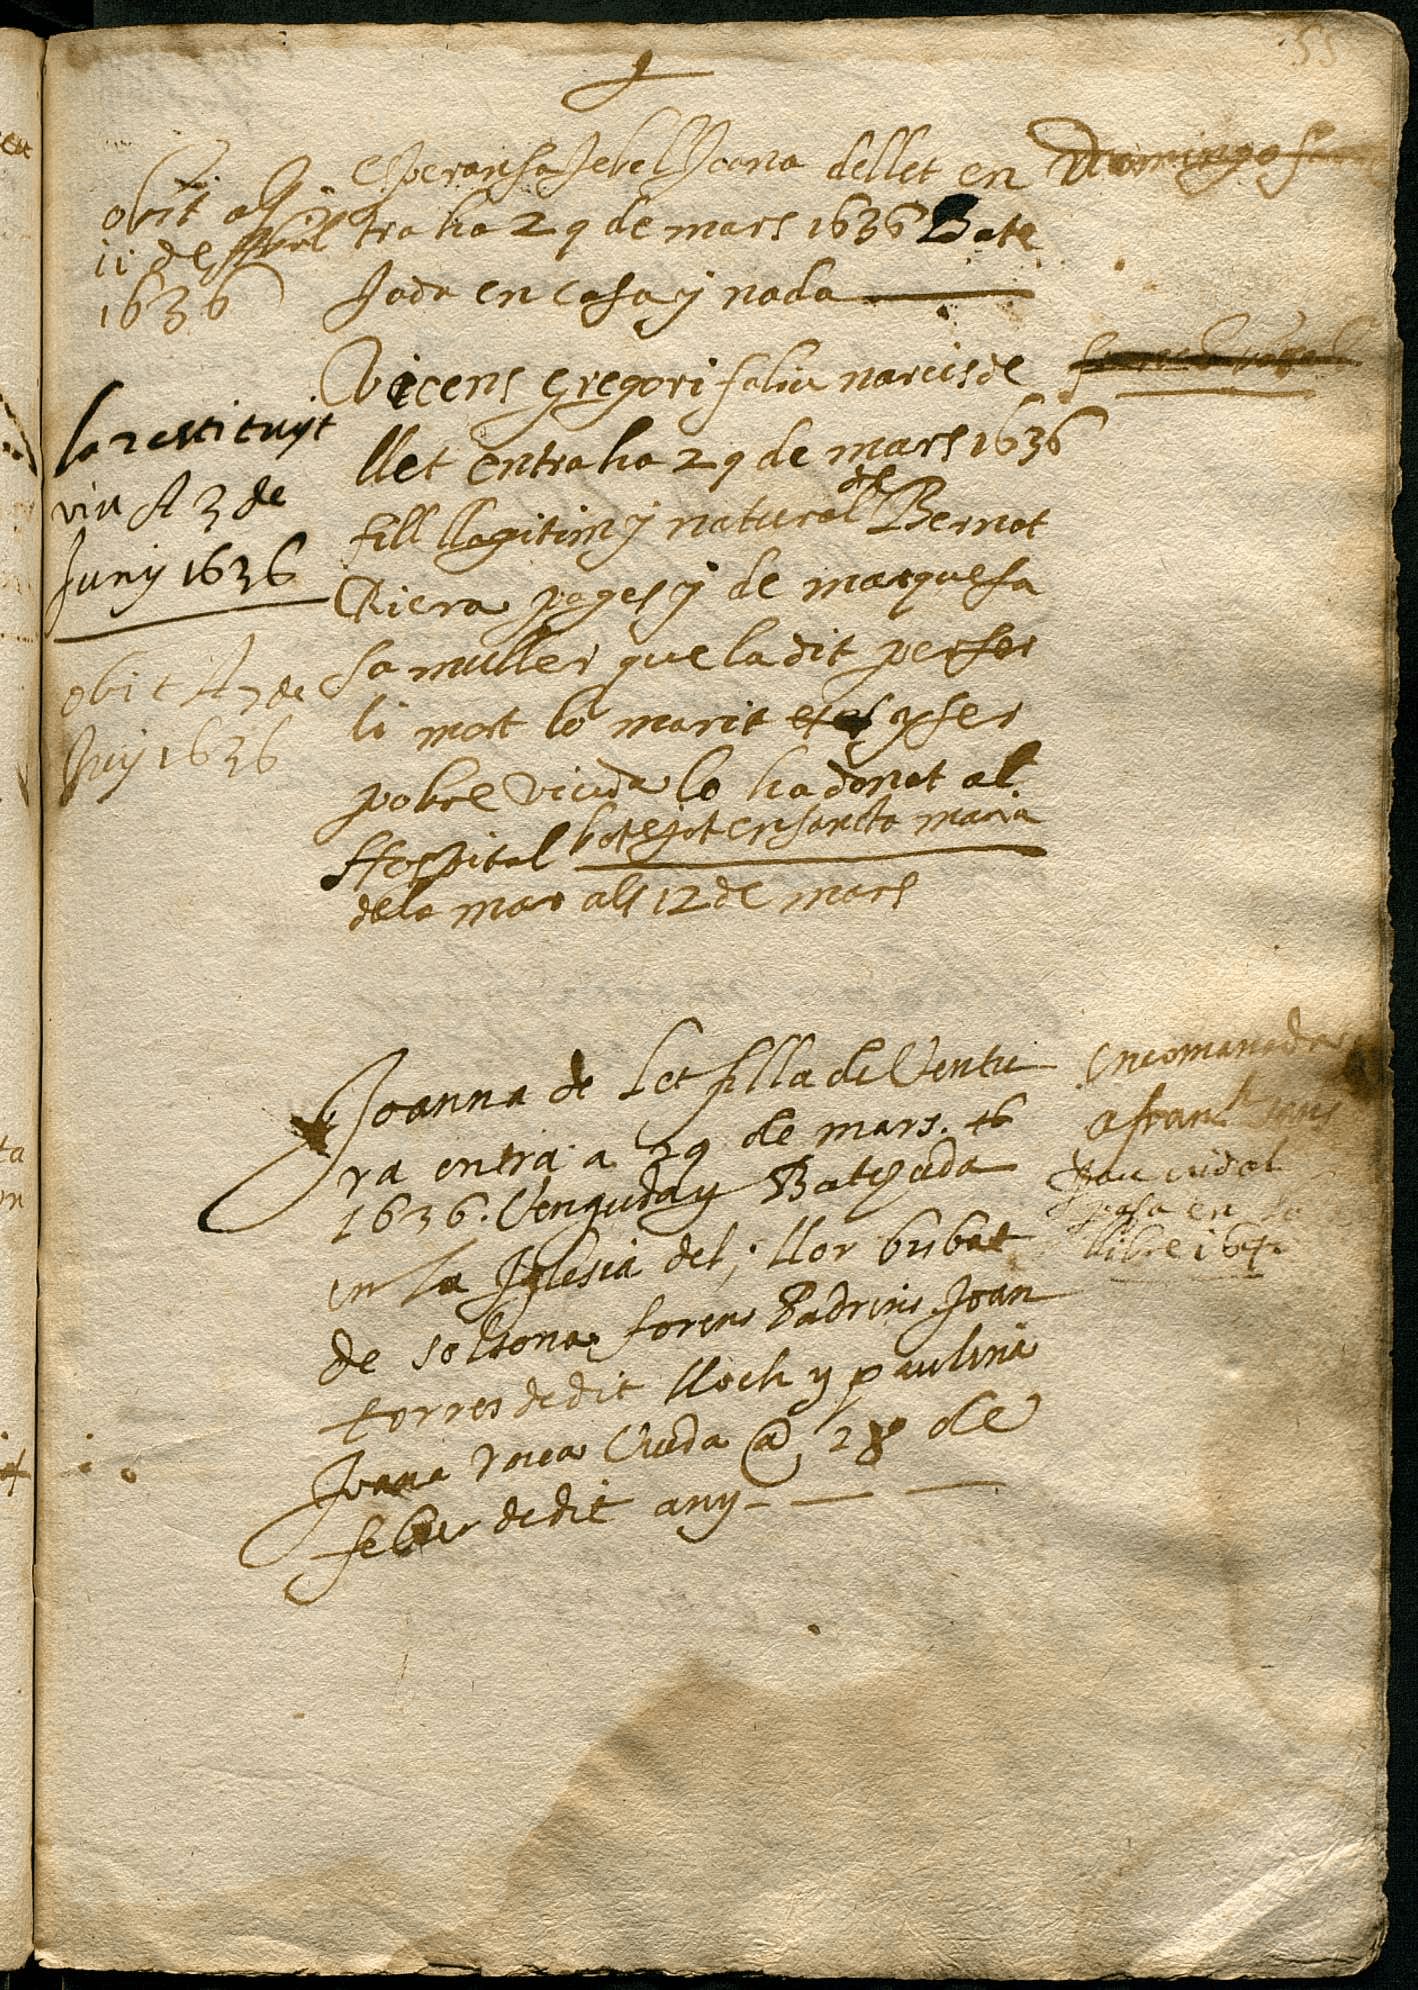 55
obiit als
11 de Abril
1636
Esperansa Jebel Joana dellet en
traha 29 de mars 1636 Bate
Jada en casa y nada
Domingo
Vicens gregori feliu narcis de
llet entraha 29 de mars 1636
fill llagitim y natural de Bernat
Riera pages y de marquesa
sa muller que la dit per ser
li mort lo marit y ser
pobre viuda lo ha donat al
Hospital batejat en sancta maria
dela mar als 12 de mars
la restituyt
viu A 3 de
Juny 1636
obit A 7 de
Juny 1636
Joanna de Let filla de Ventu
ra entra a 29 de mars.
1636. Venguda y Batejada
en la Iglesia del, llor bisbat
de solsona forens Padrins Joan
torres de dit lloch y paulina
Joana roca Viuda @ 28 de
febrer de dit any
Encomanada
a
Pau vidal
pasa en lo
llibre